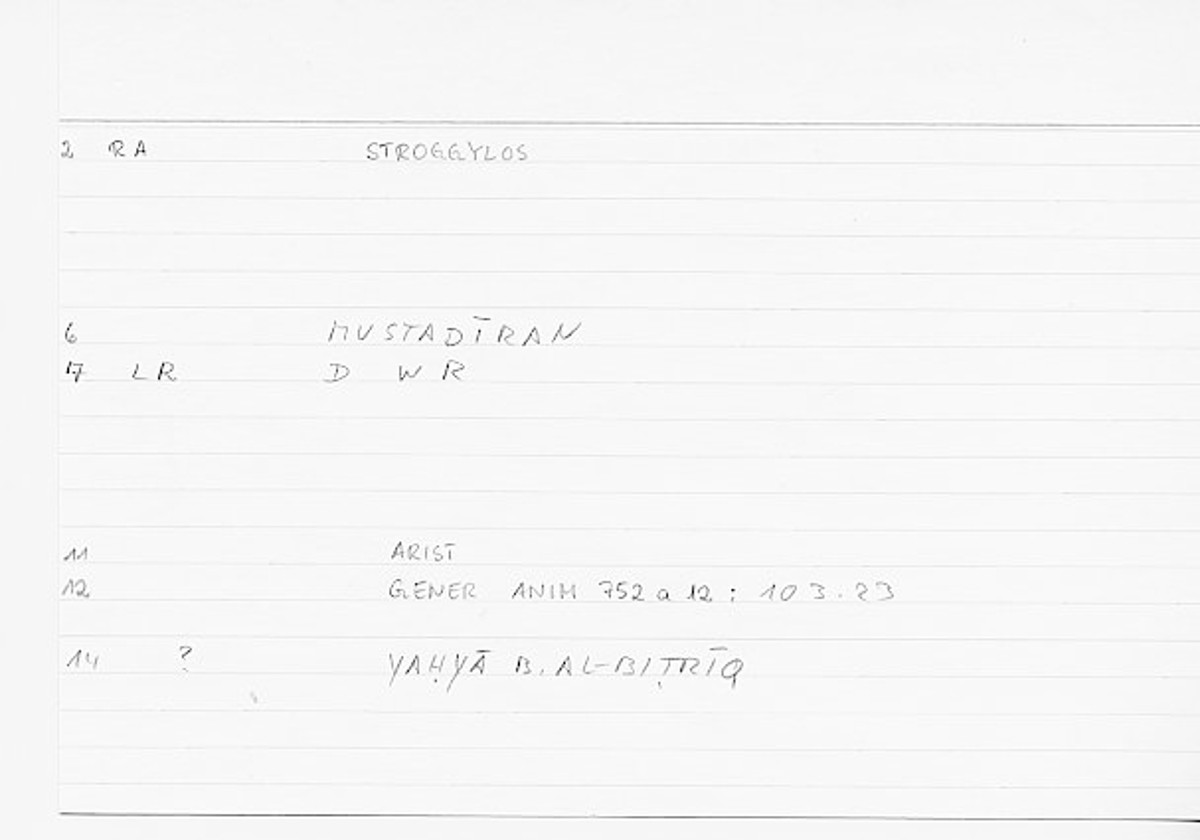 2 RA STROGGYLOS
6 MUSTADĪRAN
7 LR D W R
11 ARIST
12 GENER ANIM 752 a 12 : 103.23
14 ? YAḤYĀ B. AL-BIṬRĪQ